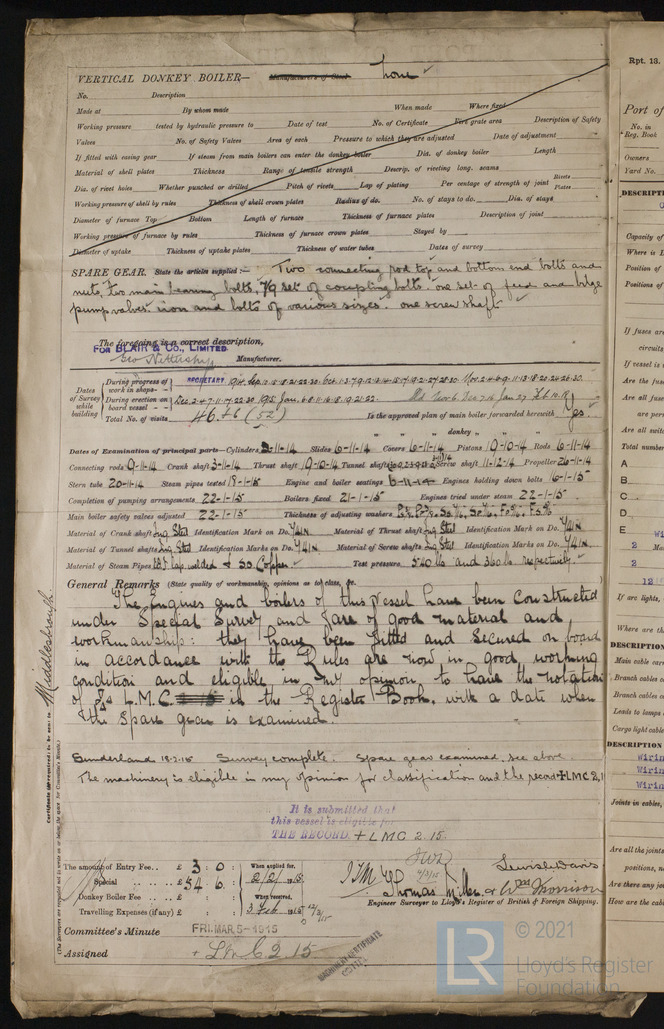 VERTICAL DONKEY BOILER— Manufacturers of Steel None
No. Description
Made at By whom made When made Where fixed
Working pressure tested by hydraulic pressure to Date of test No. of Certificate Fire grate area Description of Safety
Valves No. of Safety Valves Area of each Pressure to which they are adjusted Date of adjustment
If fitted with easing gear If steam from main boilers can enter the donkey boiler Dia. of donkey boiler Length
Material of shell plates Thickness Range of tensile strength Descrip. of riveting long. seams
Dia. of rivet holes Whether punched or drilled Pitch of rivets Lap of plating Per centage of strength of joint Rivets Plates
Working pressure of shell by rules Thickness of shell crown plates Radius of do. No. of stays to do. Dia. of stays
Diameter of furnace Top Bottom Length of furnace Thickness of furnace plates Description of joint
Working pressure of furnace by rules Thickness of furnace crown plates Stayed by
Diameter of uptake Thickness of uptake plates Thickness of water tubes Dates of survey
SPARE GEAR. State the articles supplied:— Two connecting rod top and bottom end bolts and
nuts, two main bearing bolts, set of coupling bolts. one set of feed and bilge
pump valves. iron and bolts of various sizes. one screw shaft
The foregoing is a correct description,
FOR BLAIR & Co., LIMITED
Manufacturer.
SECRETARY
Dates of Survey while building
During progress of work in shops - -
During erection on board vessel - - -
Total No. of visits 46+6 (52) Is the approved plan of main boiler forwarded herewith yes
" " " donkey " " "
Dates of Examination of principal parts—Cylinders 2-11-14 Slides 6-11-14 Covers 6-11-14 Pistons 19-10-14 Rods 6-11-14
Connecting rods 9-11-14 Crank shaft 3-11-14 Thrust shaft 19-10-14 Tunnel shafts Screw shaft 11-12-14 Propeller 26-11-14
Stern tube 20-11-14 Steam pipes tested 19-1-15 Engine and boiler seatings 6-11-14 Engines holding down bolts 16-1-15
Completion of pumping arrangements 22-1-15 Boilers fixed 21-1-15 Engines tried under steam 22-1-15
Main boiler safety valves adjusted 22-1-15 Thickness of adjusting washers
Material of Crank shaft Ing Steel Identification Mark on Do. Y41N Material of Thrust shaft Ing Steel Identification Mark on Do. Y41N
Material of Tunnel shafts Ing Steel Identification Marks on Do. Y41N Material of Screw shafts Ing Steel Identification Marks on Do. Y41N
Material of Steam Pipes lap welded & Copper Test pressure 540 lbs and 360 lbs respectively
General Remarks (State quality of workmanship, opinions as to class, &c.
The Engines and boilers of this vessel have been constructed
under Special Survey and are of good material and
workmanship: they have been fitted and secured on board
in accordance with the Rules are now in good working
condition and eligible in my opinion to have the notation
of L.M.C. in the Register Book, with a date when
the spare gear is examined.
Sunderland 18-2-15 Survey complete. Spare gear examined, see above.
The machinery is eligible in my opinion for classification and the record +LMC 2,1
It is submitted that
this vessel is eligible for
THE RECORD. + LMC 2.15.
The amount of Entry Fee.. £ 3 : 0 : When applied for,
Special .. .. £ 54 : 6 : 2/2/1915
Donkey Boiler Fee .. .. £ : : When received,
Travelling Expenses (if any) £ : : 3 Feb 1915
Lewis Davis
Thomas Miller & Wm Morrison
Engineer Surveyor to Lloyd's Register of British & Foreign Shipping.
Committee's Minute FRI. MAR. 5-1915
Assigned + LMC 2.15
MACHINERY CERTIFICATE
Middlesbrough
Certificate (if required) to be sent to
(The Surveyors are requested not to write on or below the space for Committee's Minute.)
Rpt. 13.
Port of
No. in Reg. Book
Owners
Yard No.
DESCRIPTI
Capacity of
Where is L
Position of
Positions of
If fuses are
circuits
If vessel is
Are the fu
Are all fuse
are per
Are all swit
Total number
A
B
C
D
E
2
2
12
If arc lights,
Where are th
DESCRIPTION
Main cable carr
Branch cables c
Branch cables c
Leads to lamps
Cargo light cable
DESCRIPTION
Wirin
Wirin
Wirin
Joints in cables,
Are all the joints
positions, n
Are there any jo
How are the cab
© 2021
LR
Lloyd's Register
Foundation